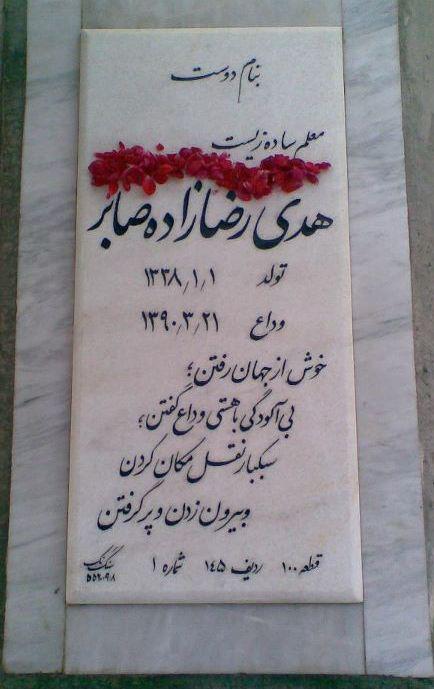 بنام دوست
معلم ساده زیست
هدی رضازاده صابر
تولد ۱۳۳۸٫۱٫۱
وداع ۱۳۹۰٫۳٫۲۱
خوش از جهان رفتن؛
بی آلودگی با هستی وداع گفتن؛
سبکبار نقل مکان کردن
و بیرون زدن و پر گرفتن
قطعه ۱۰۰ ردیف ۱۴۵ شماره ۱
سنگ